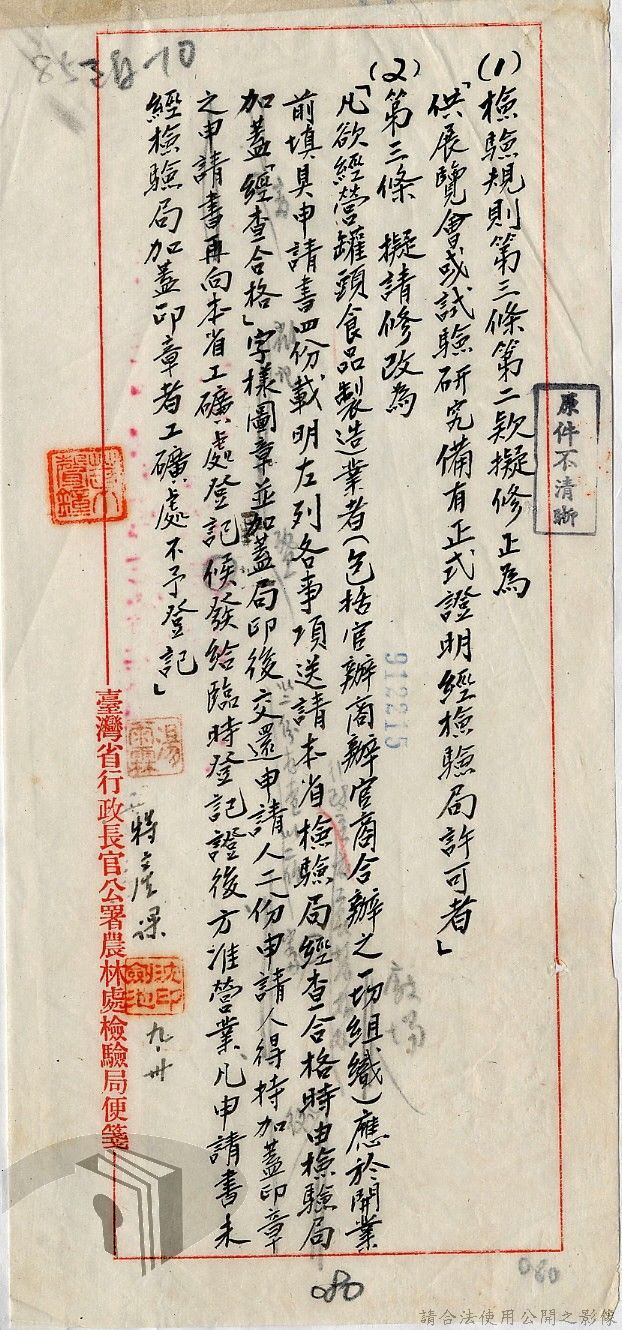 (1)檢驗規則第三條第二款擬修正為
「供展覽會或試驗研究備有正式證明經檢驗局許可者」
(2)第三條 擬請修改為
「凡欲經營罐頭食品製造業者(包括官辦商辦官商合辦之一切組織)應於開業
前填具申請書四份載明左列各事項送請本省檢驗局經查合格時由檢驗局
加蓋「經查合格」字樣圖章並加蓋局印後交還申請人二份申請人得持加蓋印章
之申請書再向本省工礦處登記候發給臨時登記證後方准營業、凡申請書未
經檢驗局加蓋印章者工礦處不予登記」
特產課
九·卅
臺灣省行政長官公署農林處檢驗局便箋
原件不清晰
912215
沈印
080
080
請合法使用公開之影像